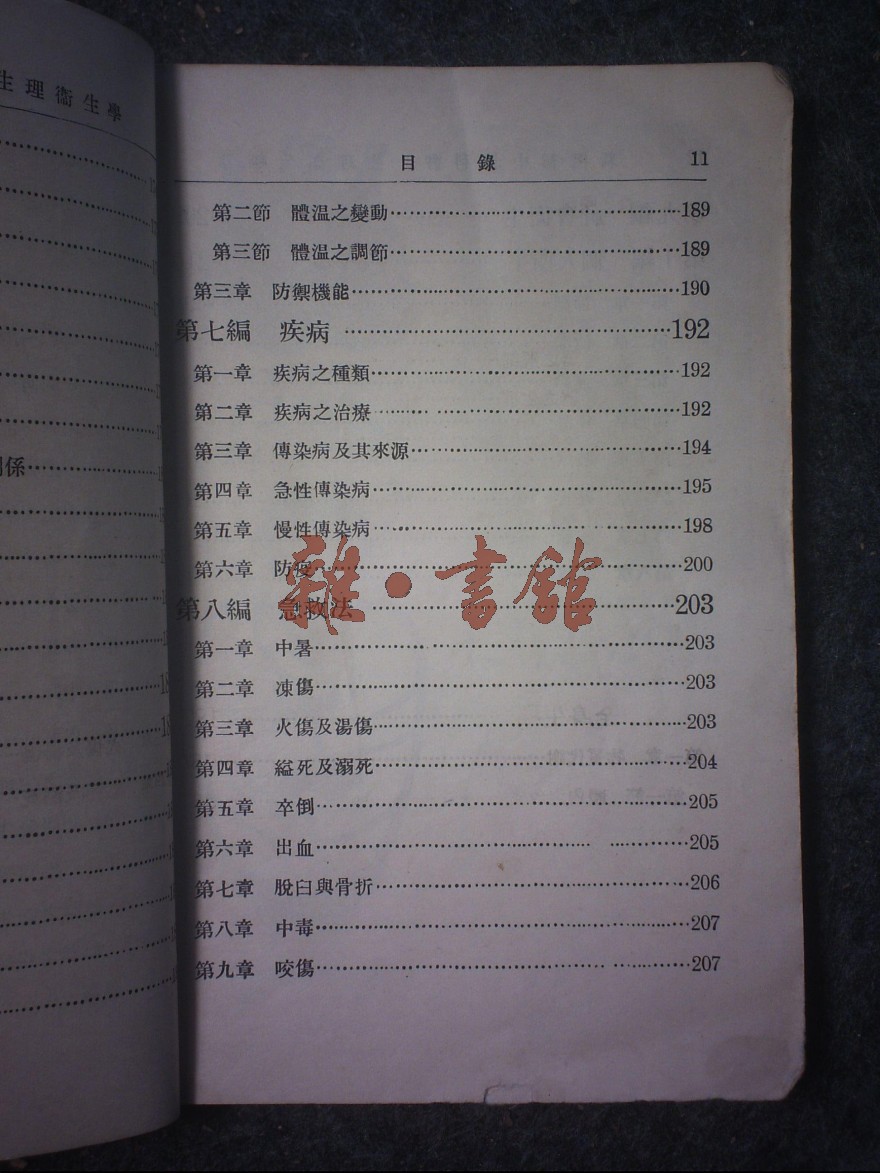 生理衞生學
係
目錄 11
第二節 體温之變動 189
第三節 體温之調節 189
第三章 防禦機能 190
第七編 疾病 192
第一章 疾病之種類 192
第二章 疾病之治療 192
第三章 傳染病及其來源 194
第四章 急性傳染病 195
第五章 慢性傳染病 198
第六章 防疫 200
雜·書館
第八編 急救法 203
第一章 中暑 203
第二章 凍傷 203
第三章 火傷及湯傷 203
第四章 縊死及溺死 204
第五章 卒倒 205
第六章 出血 205
第七章 脫臼與骨折 206
第八章 中毒 207
第九章 咬傷 207